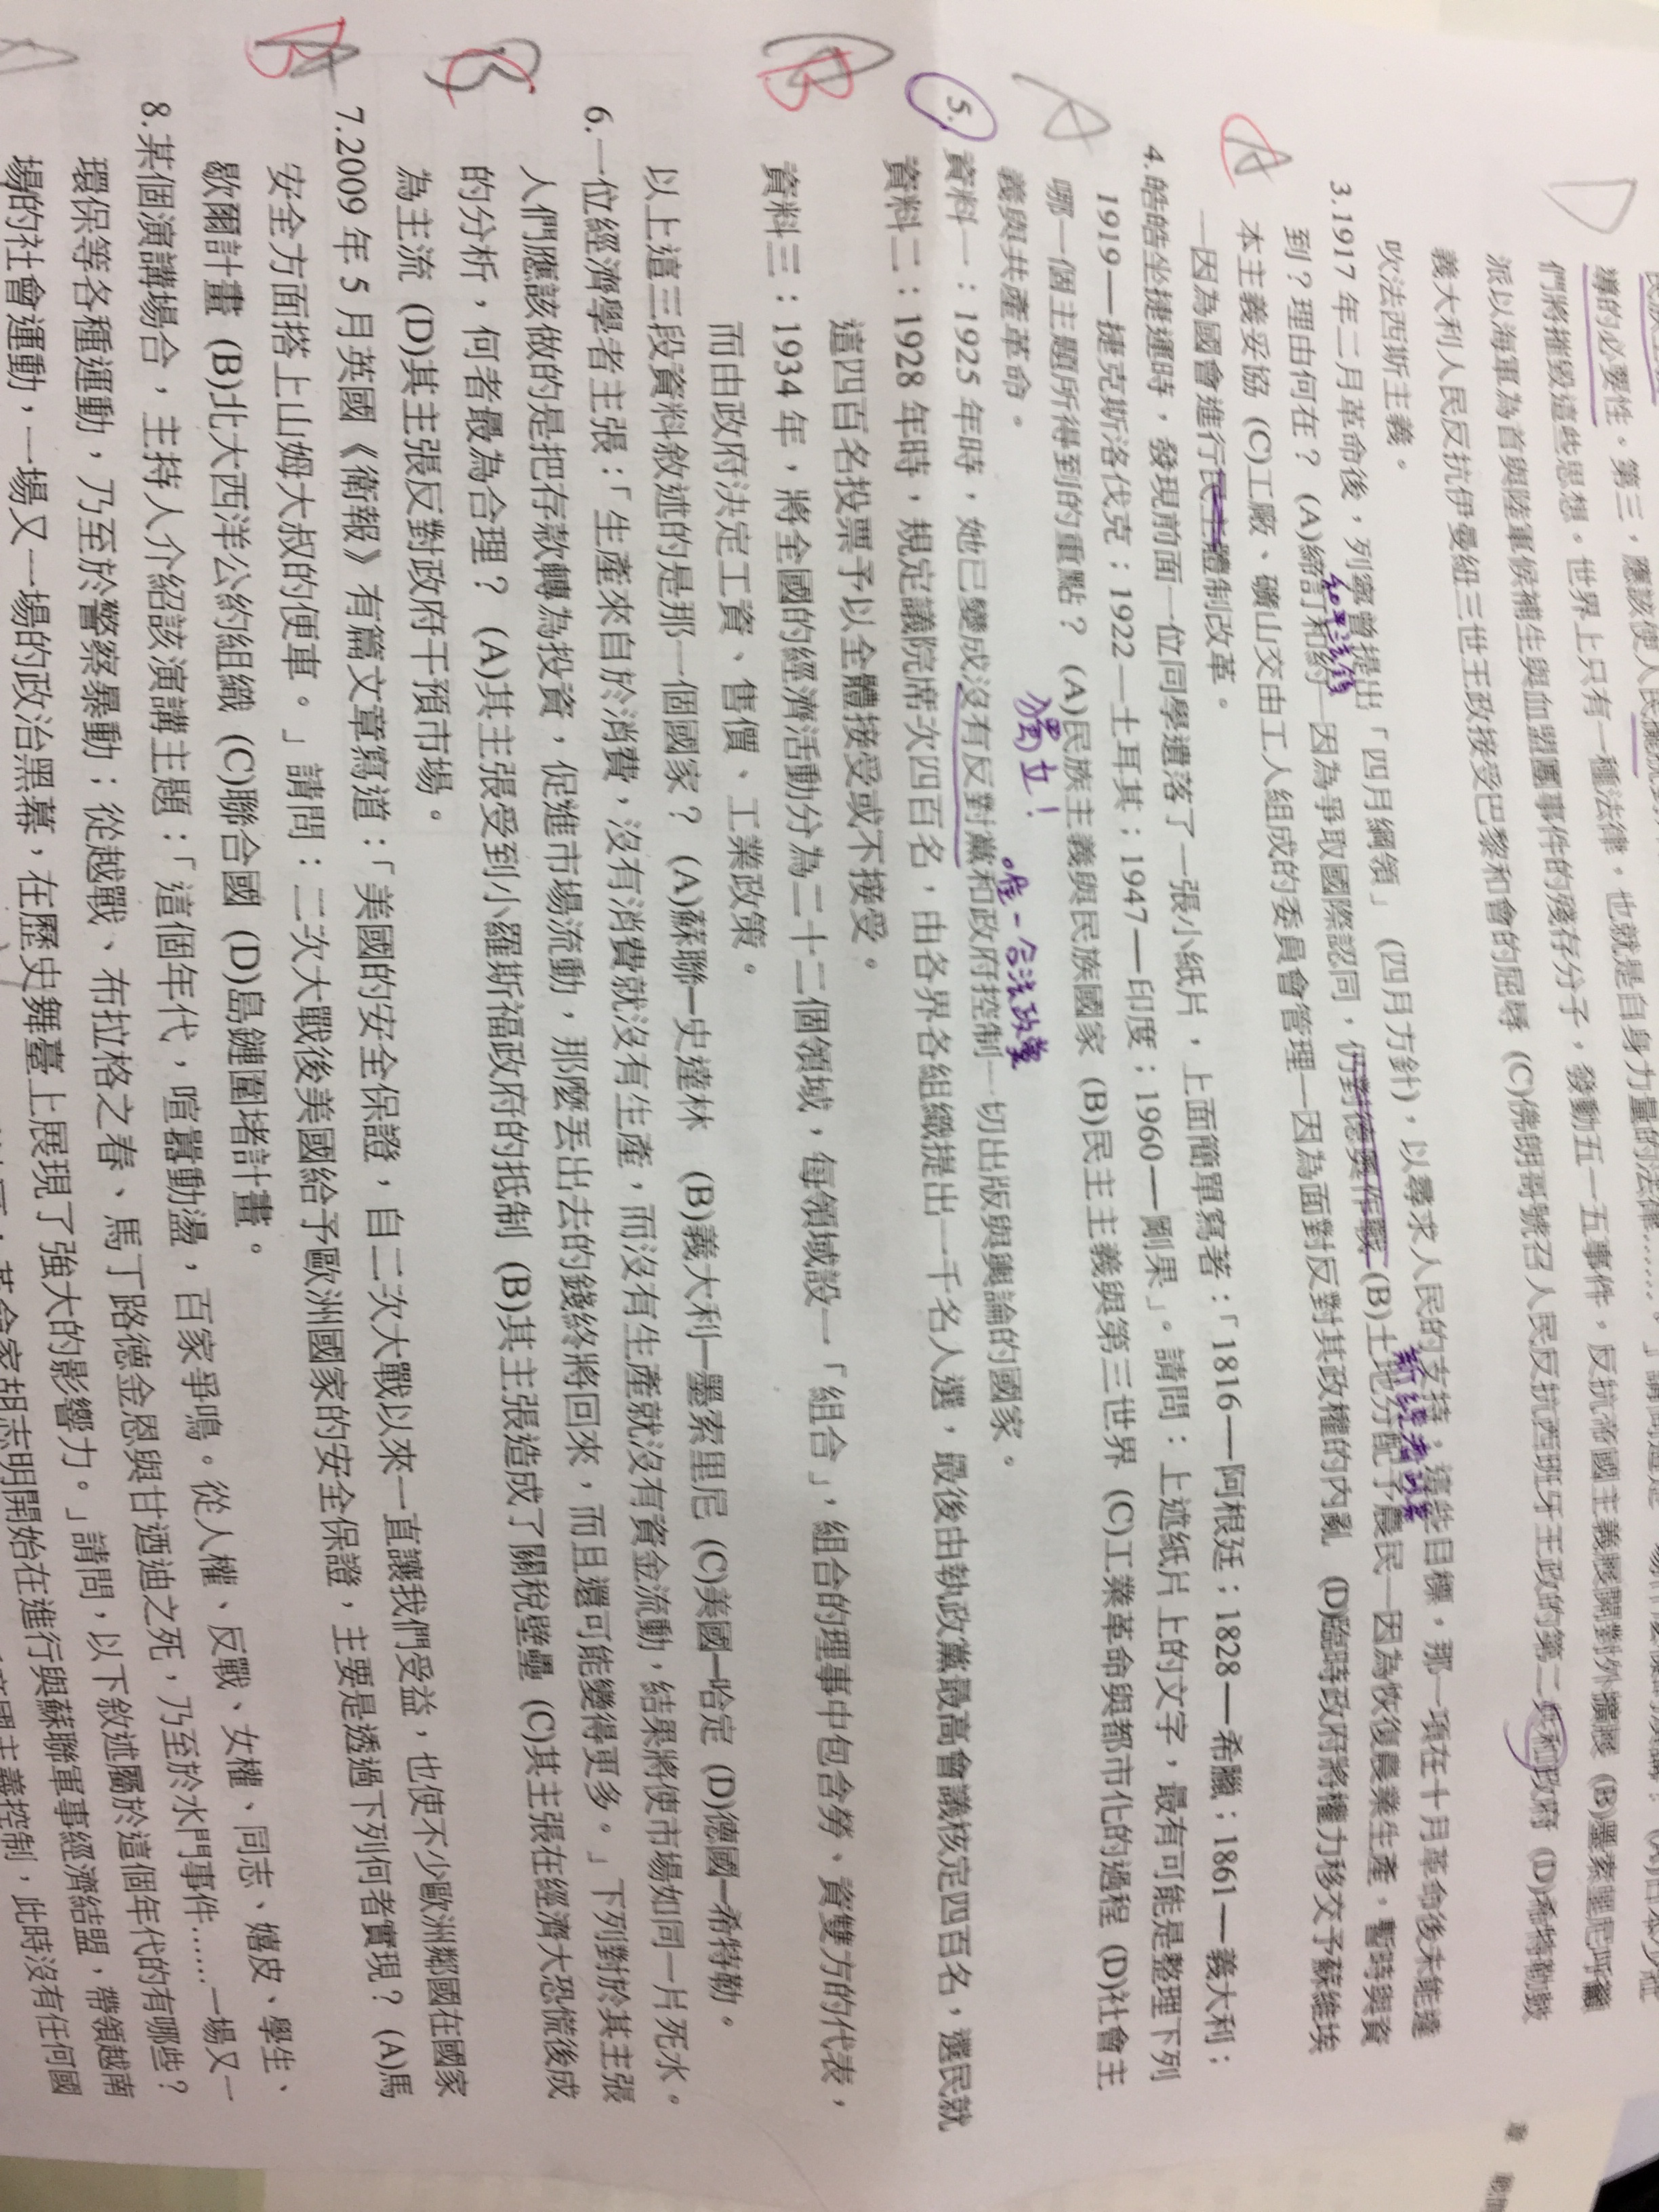 導的必要性。第三，應該使人民
們將摧毀這些思想。世界上只有一種法律，也就是自身力量的法律……。」
派以海軍為首與陸軍候補生與血盟團事件的殘存分子，發動五一五事件，反抗帝國主義展開對外擴張 (B)墨索里尼呼籲
義大利人民反抗伊曼紐三世王政接受巴黎和會的屈辱 (C)佛朗哥號召人民反抗西班牙王政的第二共和政府 (D)希特勒鼓
吹法西斯主義。
D
3.1917 年二月革命後，列寧曾提出「四月綱領」（四月方針），以尋求人民的支持，這些目標，那一項在十月革命後未能達
到？理由何在？ (A)締訂和約—因為爭取國際認同，仍對德奧作戰 (B)土地分配予農民—因為恢復農業生產，暫時與資
本主義妥協 (C)工廠、礦山交由工人組成的委員會管理—因為面對反對其政權的內亂 (D)臨時政府將權力移交予蘇維埃
—因為國會進行民主體制改革。
新經濟政策
A
4.皓皓坐捷運時，發現前面一位同學遺落了一張小紙片，上面簡單寫著：「1816—阿根廷；1828—希臘；1861—義大利；
1919—捷克斯洛伐克；1922—土耳其；1947—印度；1960—剛果」。請問：上述紙片上的文字，最有可能是整理下列
哪一個主題所得到的重點？ (A)民族主義與民族國家 (B)民主主義與第三世界 (C)工業革命與都市化的過程 (D)社會主
義與共產革命。
獨立！
A
唯一合法政黨
5. 資料一：1925 年時，她已變成沒有反對黨和政府控制一切出版與輿論的國家。
資料二：1928 年時，規定議院席次四百名，由各界各組織提出一千名人選，最後由執政黨最高會議核定四百名，選民就
這四百名投票予以全體接受或不接受。
資料三：1934 年，將全國的經濟活動分為二十二個領域，每領域設一「組合」，組合的理事中包含勞、資雙方的代表，
而由政府決定工資、售價、工業政策。
以上這三段資料敘述的是那一個國家？ (A)蘇聯—史達林 (B)義大利—墨索里尼 (C)美國—哈定 (D)德國—希特勒。
B
6.一位經濟學者主張：「生產來自於消費，沒有消費就沒有生產，而沒有生產就沒有資金流動，結果將使市場如同一片死水。
人們應該做的是把存款轉為投資，促進市場流動，那麼丟出去的錢終將回來，而且還可能變得更多。」下列對於其主張
的分析，何者最為合理？ (A)其主張受到小羅斯福政府的抵制 (B)其主張造成了關稅壁壘 (C)其主張在經濟大恐慌後成
為主流 (D)其主張反對政府干預市場。
C
7.2009 年 5 月英國《衛報》有篇文章寫道：「美國的安全保證，自二次大戰以來一直讓我們受益，也使不少歐洲鄰國在國家
安全方面搭上山姆大叔的便車。」請問：二次大戰後美國給予歐洲國家的安全保證，主要是透過下列何者實現？ (A)馬
歇爾計畫 (B)北大西洋公約組織 (C)聯合國 (D)島鏈圍堵計畫。
B
8.某個演講場合，主持人介紹該演講主題：「這個年代，喧囂動盪，百家爭鳴。從人權、反戰、女權、同志、嬉皮、學生、
環保等各種運動，乃至於警察暴動；從越戰、布拉格之春、馬丁路德金恩與甘迺迪之死，乃至於水門事件……一場又一
場的社會運動，一場又一場的政治黑幕，在歷史舞臺上展現了強大的影響力。」請問，以下敘述屬於這個年代的有哪些？
胡志明開始在進行與蘇聯軍事經濟結盟，帶領越南
此時沒有任何國